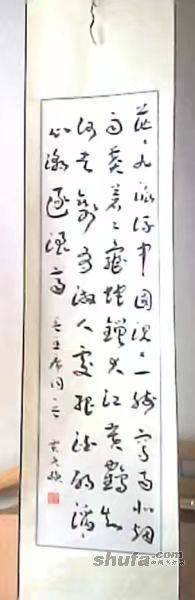 茫々九派流中国沉々一线穿南北烟
雨莽苍々龟蛇锁大江黄鹤知
何去剩有游人处把酒酹滔々
心潮逐浪高
shufa.com